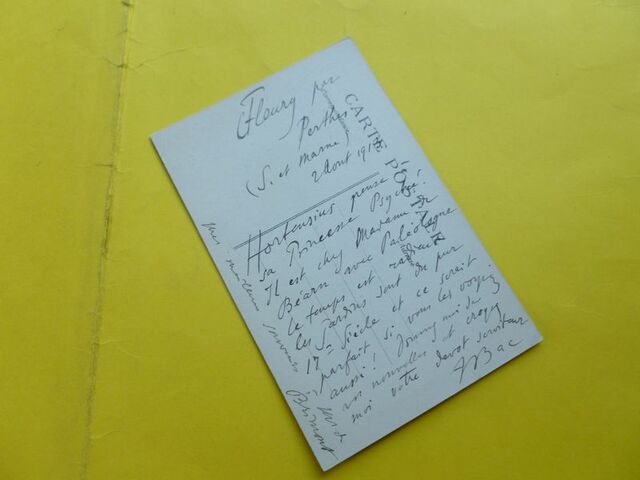 Fleury par
Perthes
(S. et Marne)
2 Aout 191
CARTE POSTALE
Hortensius pense à
sa Princesse Psyché!
Il est chez Madame de
Béarn avec Paléologue
le temps est radieux
les jardins sont du pur
17me Siècle et ce serait
parfait si vous les voyez
aussi! Donnez moi de
vos nouvelles et croyez
moi votre dévot serviteur
Bac
mes meilleurs souvenirs
Brimont